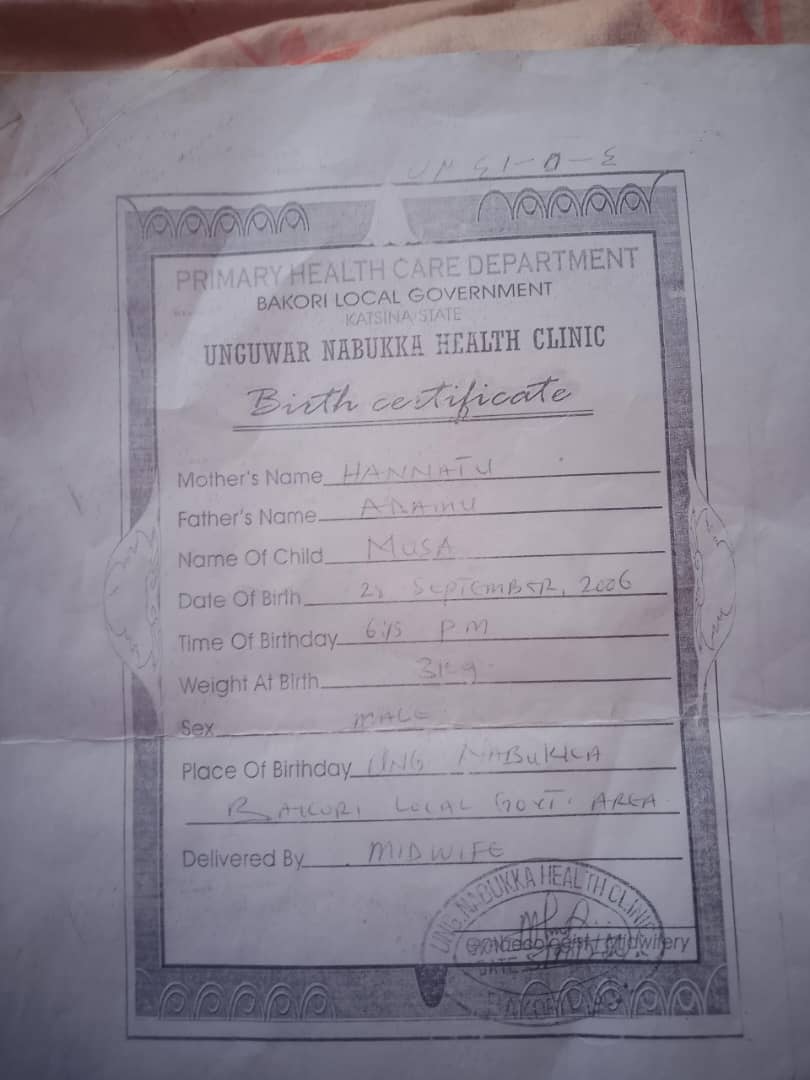 PRIMARY HEALTH CARE DEPARTMENT
BAKORI LOCAL GOVERNMENT
KATSINA STATE
UNGUWAR NABUKKA HEALTH CLINIC
Birth certificate
Mother's Name HANNATU
Father's Name
Name Of Child MUSA
Date Of Birth SEPTEMBER, 2006
Time Of Birthday 6:15 PM
Weight At Birth 3kg.
Sex MALE
Place Of Birthday UNG NABUKKA
BAKORI LOCAL GOVT. AREA
Delivered By MIDWIFE
UNG. NABUKKA HEALTH CLINIC
Gynaecologist / Midwifery
DATE